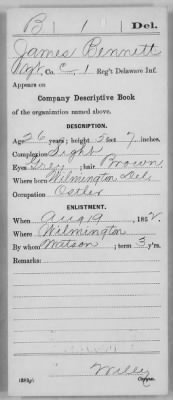 B | 1 | Del.
James Bennett
Pvt., Co. C, 1 Reg't Delaware Inf.
Appears on
Company Descriptive Book
of the organization named above.
DESCRIPTION.
Age 26 years; height 5 feet 7 inches.
Complexion Light
Eyes Grey; hair Brown
Where born Wilmington Del
Occupation Ostler
ENLISTMENT.
When Aug 19, 1862.
Where Wilmington
By whom Watson; term 3 y'rs.
Remarks:
Wiley
Copyist.